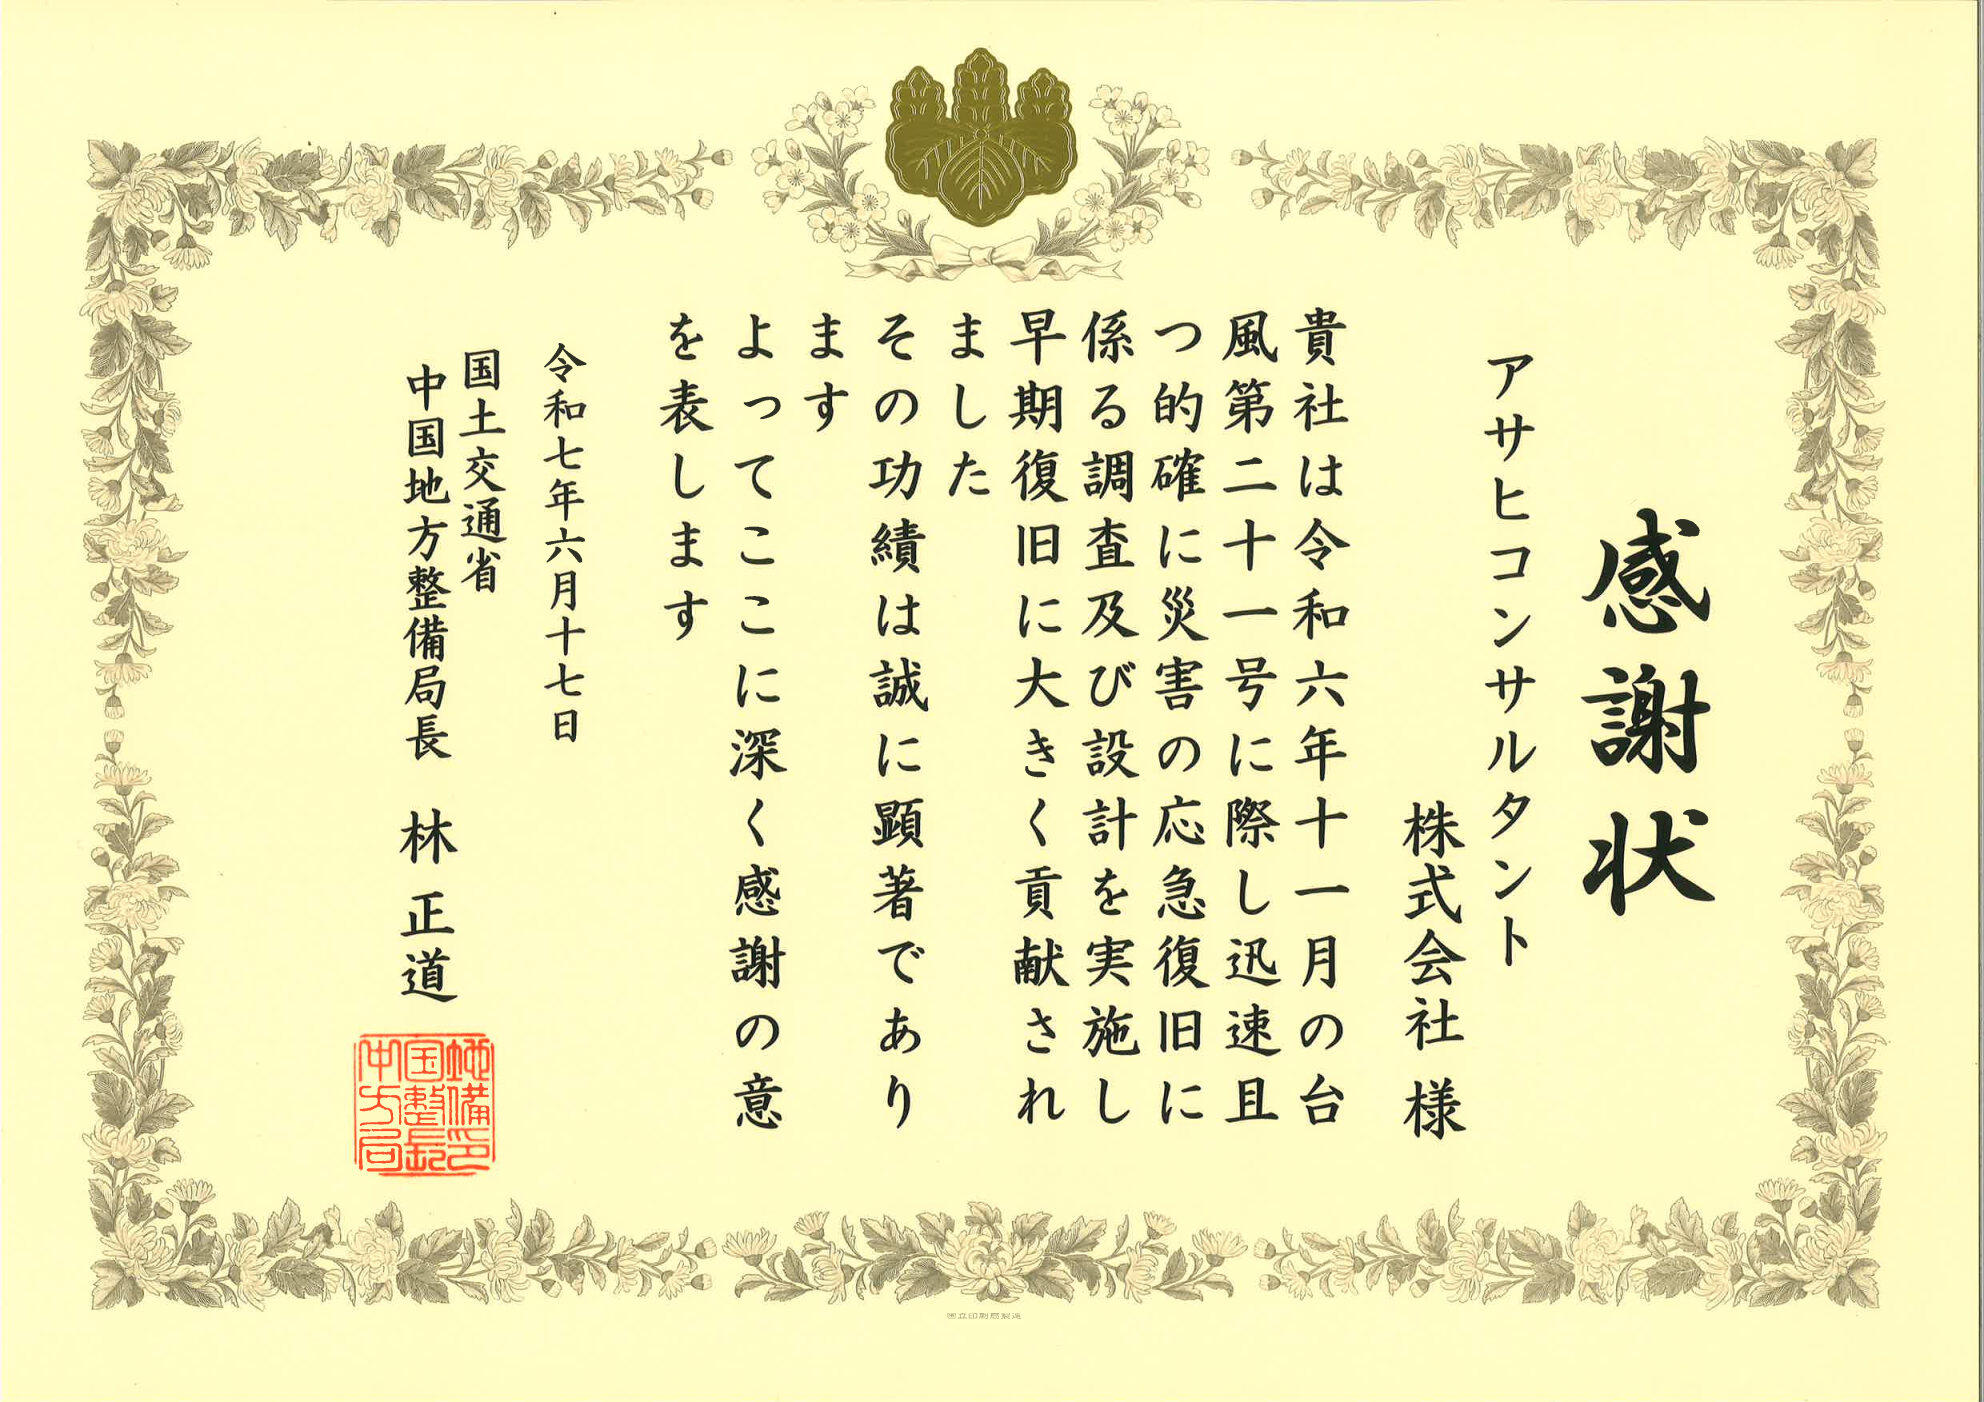 感謝状
アサヒコンサルタント
株式会社 様
貴社は令和六年十一月の台
風第二十一号に際し迅速且
つ的確に災害の応急復旧に
係る調査及び設計を実施し
早期復旧に大きく貢献され
ました
その功績は誠に顕著であり
ます
よってここに深く感謝の意
を表します
令和七年六月十七日
国土交通省
中国地方整備局長 林正道
中国地
方整備
局長印
国立印刷局製造